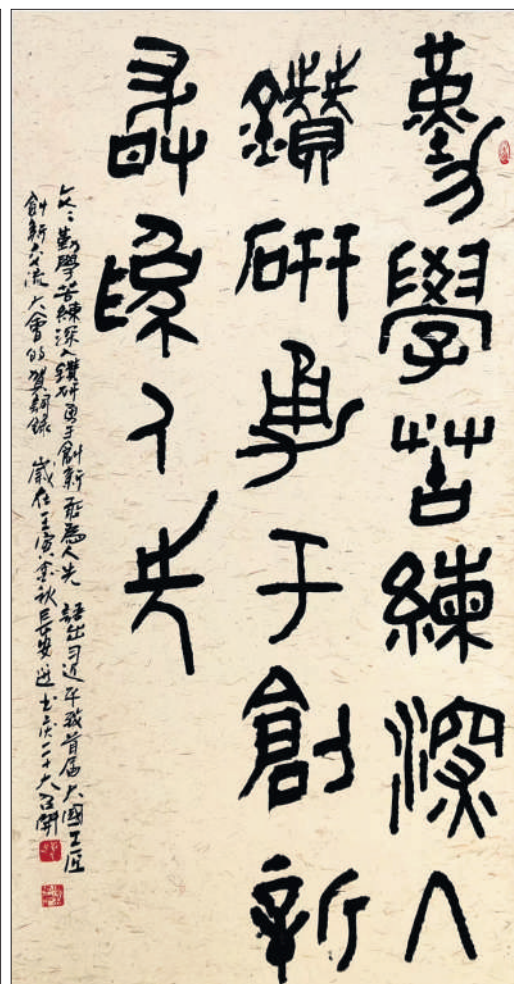 勤學苦練深入
鑽研勇于創新
敢為人先
文之勤學苦練深入鑽研勇于創新敢為人先 語出习近平致首届大國工匠
創新交流大會的賀詞錄 歲在壬寅金秋長安 書慶二十大召開